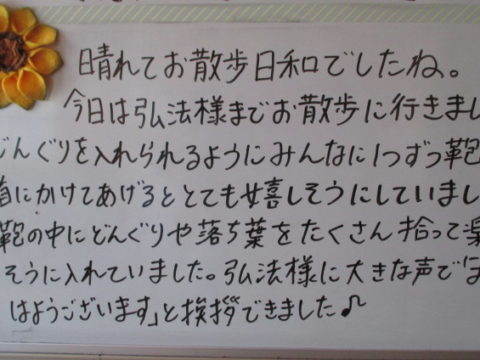 晴れてお散歩日和でしたね。
今日は弘法様までお散歩に行きまし
どんぐりを入れられるようにみんなに1つずつ鞄
首にかけてあげるととても嬉しそうにしていまし
鞄の中にどんぐりや落ち葉をたくさん拾って楽
そうに入れていました。弘法様に大きな声で「お
はようございます」と挨拶できました♪